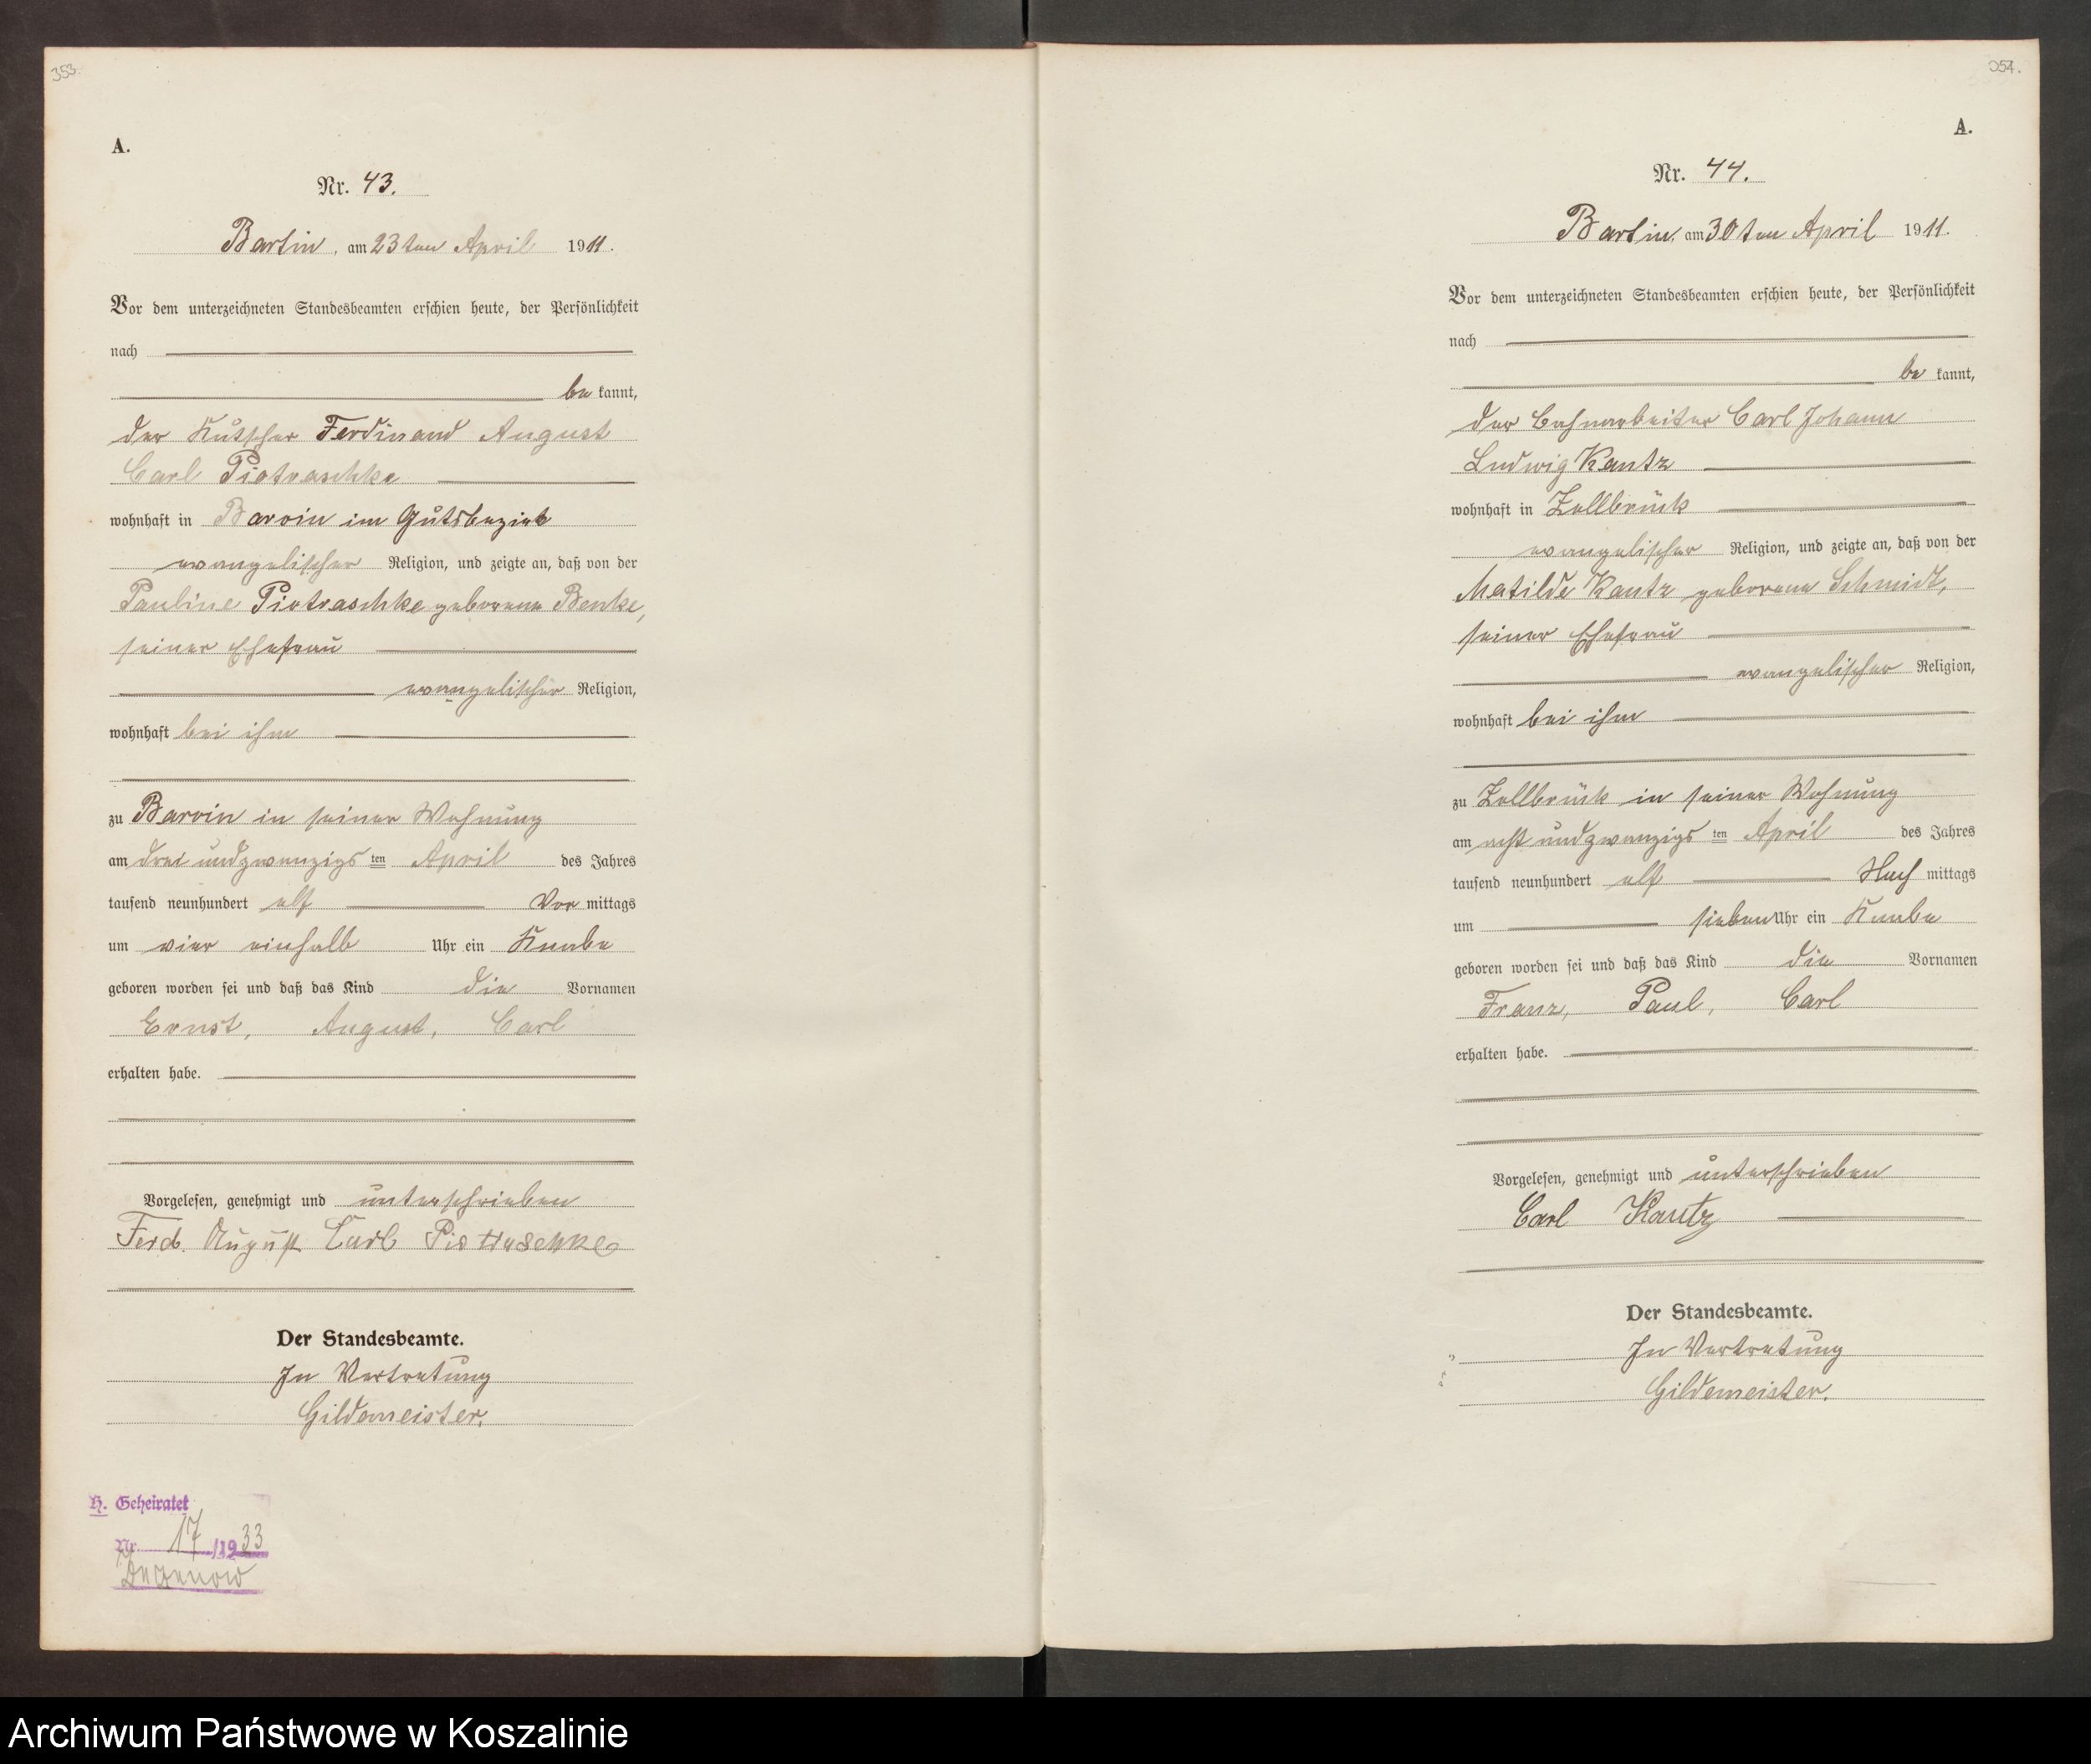 353.
A.
Nr. 43.
Bartin, am 23ten April 1911.
Vor dem unterzeichneten Standesbeamten erschien heute, der Persönlichkeit
nach
be kannt,
der Kutscher Ferdinand August
Carl Piotraschke
wohnhaft in Barvin im Gutsbezirk
evangelischer Religion, und zeigte an, daß von der
Pauline Piotraschke geborene Benke,
seiner Ehefrau
evangelischer Religion,
wohnhaft bei ihm
zu Barvin in seiner Wohnung
am drei undzwanzigs ten April des Jahres
tausend neunhundert elf Vor mittags
um vier einhalb Uhr ein Knabe
geboren worden sei und daß das Kind die Vornamen
Ernst, August, Carl
erhalten habe.
Vorgelesen, genehmigt und unterschrieben
Ferd. August Carl Piotraschke
Der Standesbeamte.
In Vertretung
Gildemeister.
H. Geheiratet
Nr. 17 /1933
354.
A.
Nr. 44.
Bartin, am 30ten April 1911.
Vor dem unterzeichneten Standesbeamten erschien heute, der Persönlichkeit
nach
be kannt,
der Bahnarbeiter Carl Johann
Ludwig Kautz
wohnhaft in Zollbrück
evangelischer Religion, und zeigte an, daß von der
Matilde Kautz geborene Schmidt,
seiner Ehefrau
evangelischer Religion,
wohnhaft bei ihm
zu Zollbrück in seiner Wohnung
am acht undzwanzigs ten April des Jahres
tausend neunhundert elf Nach mittags
um sieben Uhr ein Knabe
geboren worden sei und daß das Kind die Vornamen
Franz, Paul, Carl
erhalten habe.
Vorgelesen, genehmigt und unterschrieben
Carl Kautz
Der Standesbeamte.
In Vertretung
Gildemeister.
Archiwum Państwowe w Koszalinie